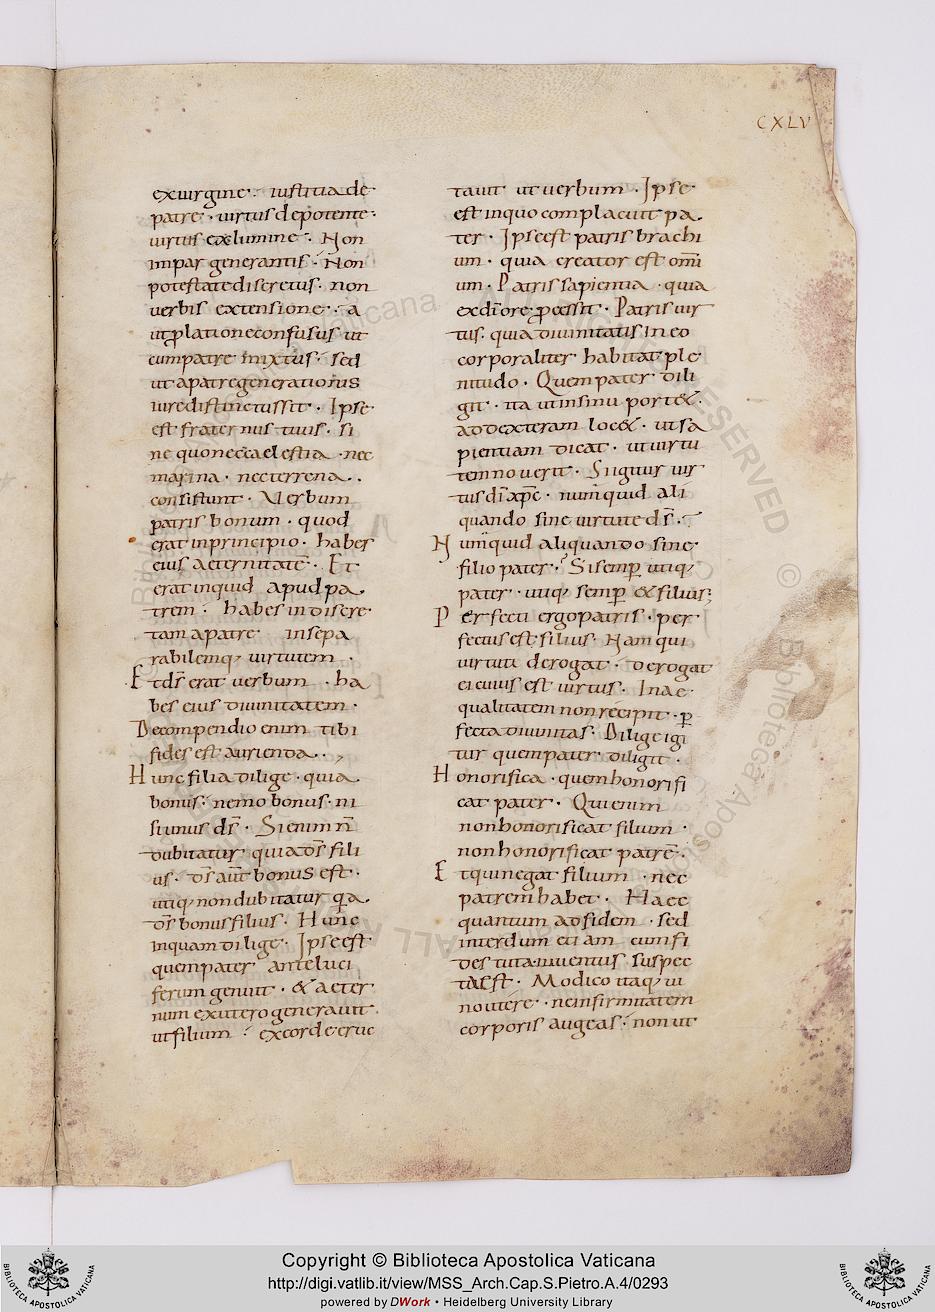 CXLV
exuirgine · iustitia de
patre · uirtus depotente ·
uirtus exlumine · Non
impar generantis · Non
potestate discretus · non
uerbis extensione · a
ut plationeconfusus ut
cumpatre mixtus · sed
ut apatregenerationis
iuredistinctussit · Ipse
est frater nus tuus · si
ne quonec caelestia · nec
marina · necterrena ·
consistunt · Uerbum
patris bonum · quod
erat inprincipio · habes
eius aeternitatē · Et
erat inquid apud pa
trem · habes indiscre
tam apatre insepa
rabilemq; uirtutem ·
Et ds̄ erat uerbum · ha
bes eius diuinitatem ·
Decompendio enim tibi
fides est aurienda ·,
Hunc filia dilige · quia
bonus · nemo bonus · ni
siunus ds̄ · Si enim n̄
dubitatur quia ds̄ fili
us · ds̄ aūt bonus est ·
utiq; nondubitatur qa
ds̄ bonus filius · Hunc
inquam dilige · Ipse est
quem pater anteluci
ferum genuit · & aeter
num exutero generauit
utfilium · excorde eruc
tauit ut uerbum · Ipse
est inquo complacuit pa
ter · Ipse est patris brachi
um · quia creator est omī
um · Patris sapientia · quia
exdī ore p̄cessit · Patris uir
tus · quia diuinitatis in eo
corporaliter habitat ple
nitudo · Quem pater dili
git · ita ut insinu port& ·
addexteram loc& · ut sa
pientiam dicat · ut uirtu
tem nouerit · Si igitur uir
tus dī xp̄c · numquid ali
quando sine uirtute ds̄ ·
Numquid aliquando sine
filio pater · Si semp̄ utiq;
pater · utiq; semp̄ & filius;
Perfecti ergo patris · per
fectus est filius · Nam qui
uirtuti derogat · derogat
ei cuius est uirtus · Inae
qualitatem non recipit · p̄
fecta diuinitas · Dilige igi
tur quem pater diligit ·
Honorifica · quem honorifi
cat pater · Qui enim
non honorificat filium ·
non honorificat patrē ·
Et qui negat filium · nec
patrem habet · Haec
quantum ad fidem · sed
interdum etiam cum fi
des tuta iuuentus suspec
taest · Modico itaq; ui
no utere · ne infirmitatem
corporis augeas · non ut
Copyright © Biblioteca Apostolica Vaticana
http://digi.vatlib.it/view/MSS_Arch.Cap.S.Pietro.A.4/0293
powered by DWork • Heidelberg University Library